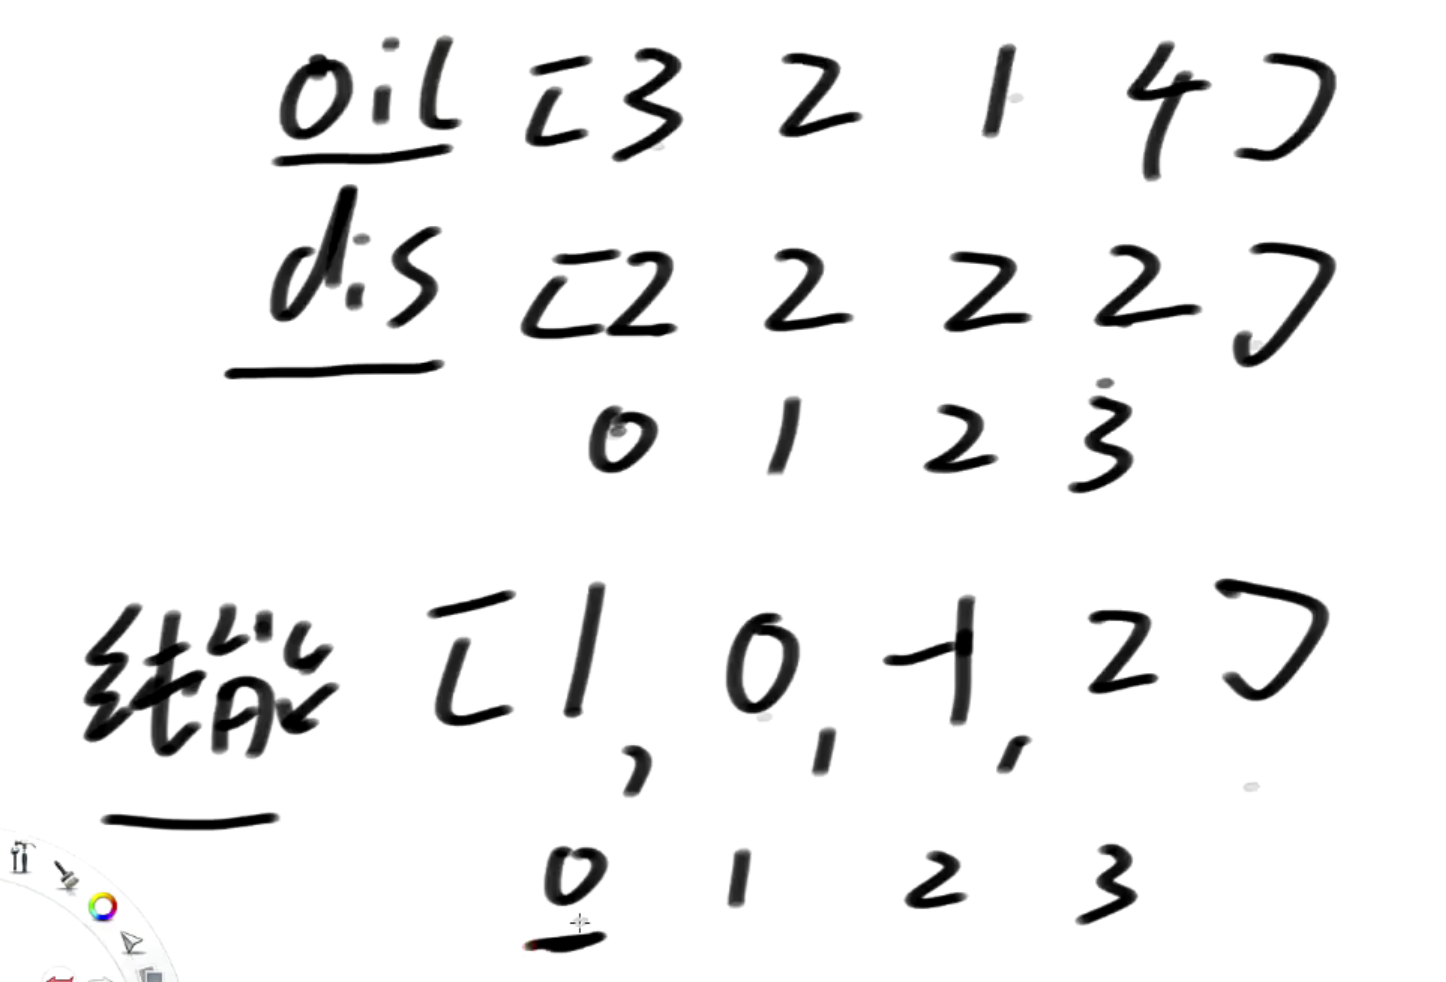 oil [3 2 1 4]
dis [2 2 2 2]
0 1 2 3
纯能 [1, 0, -1, 2]
0 1 2 3